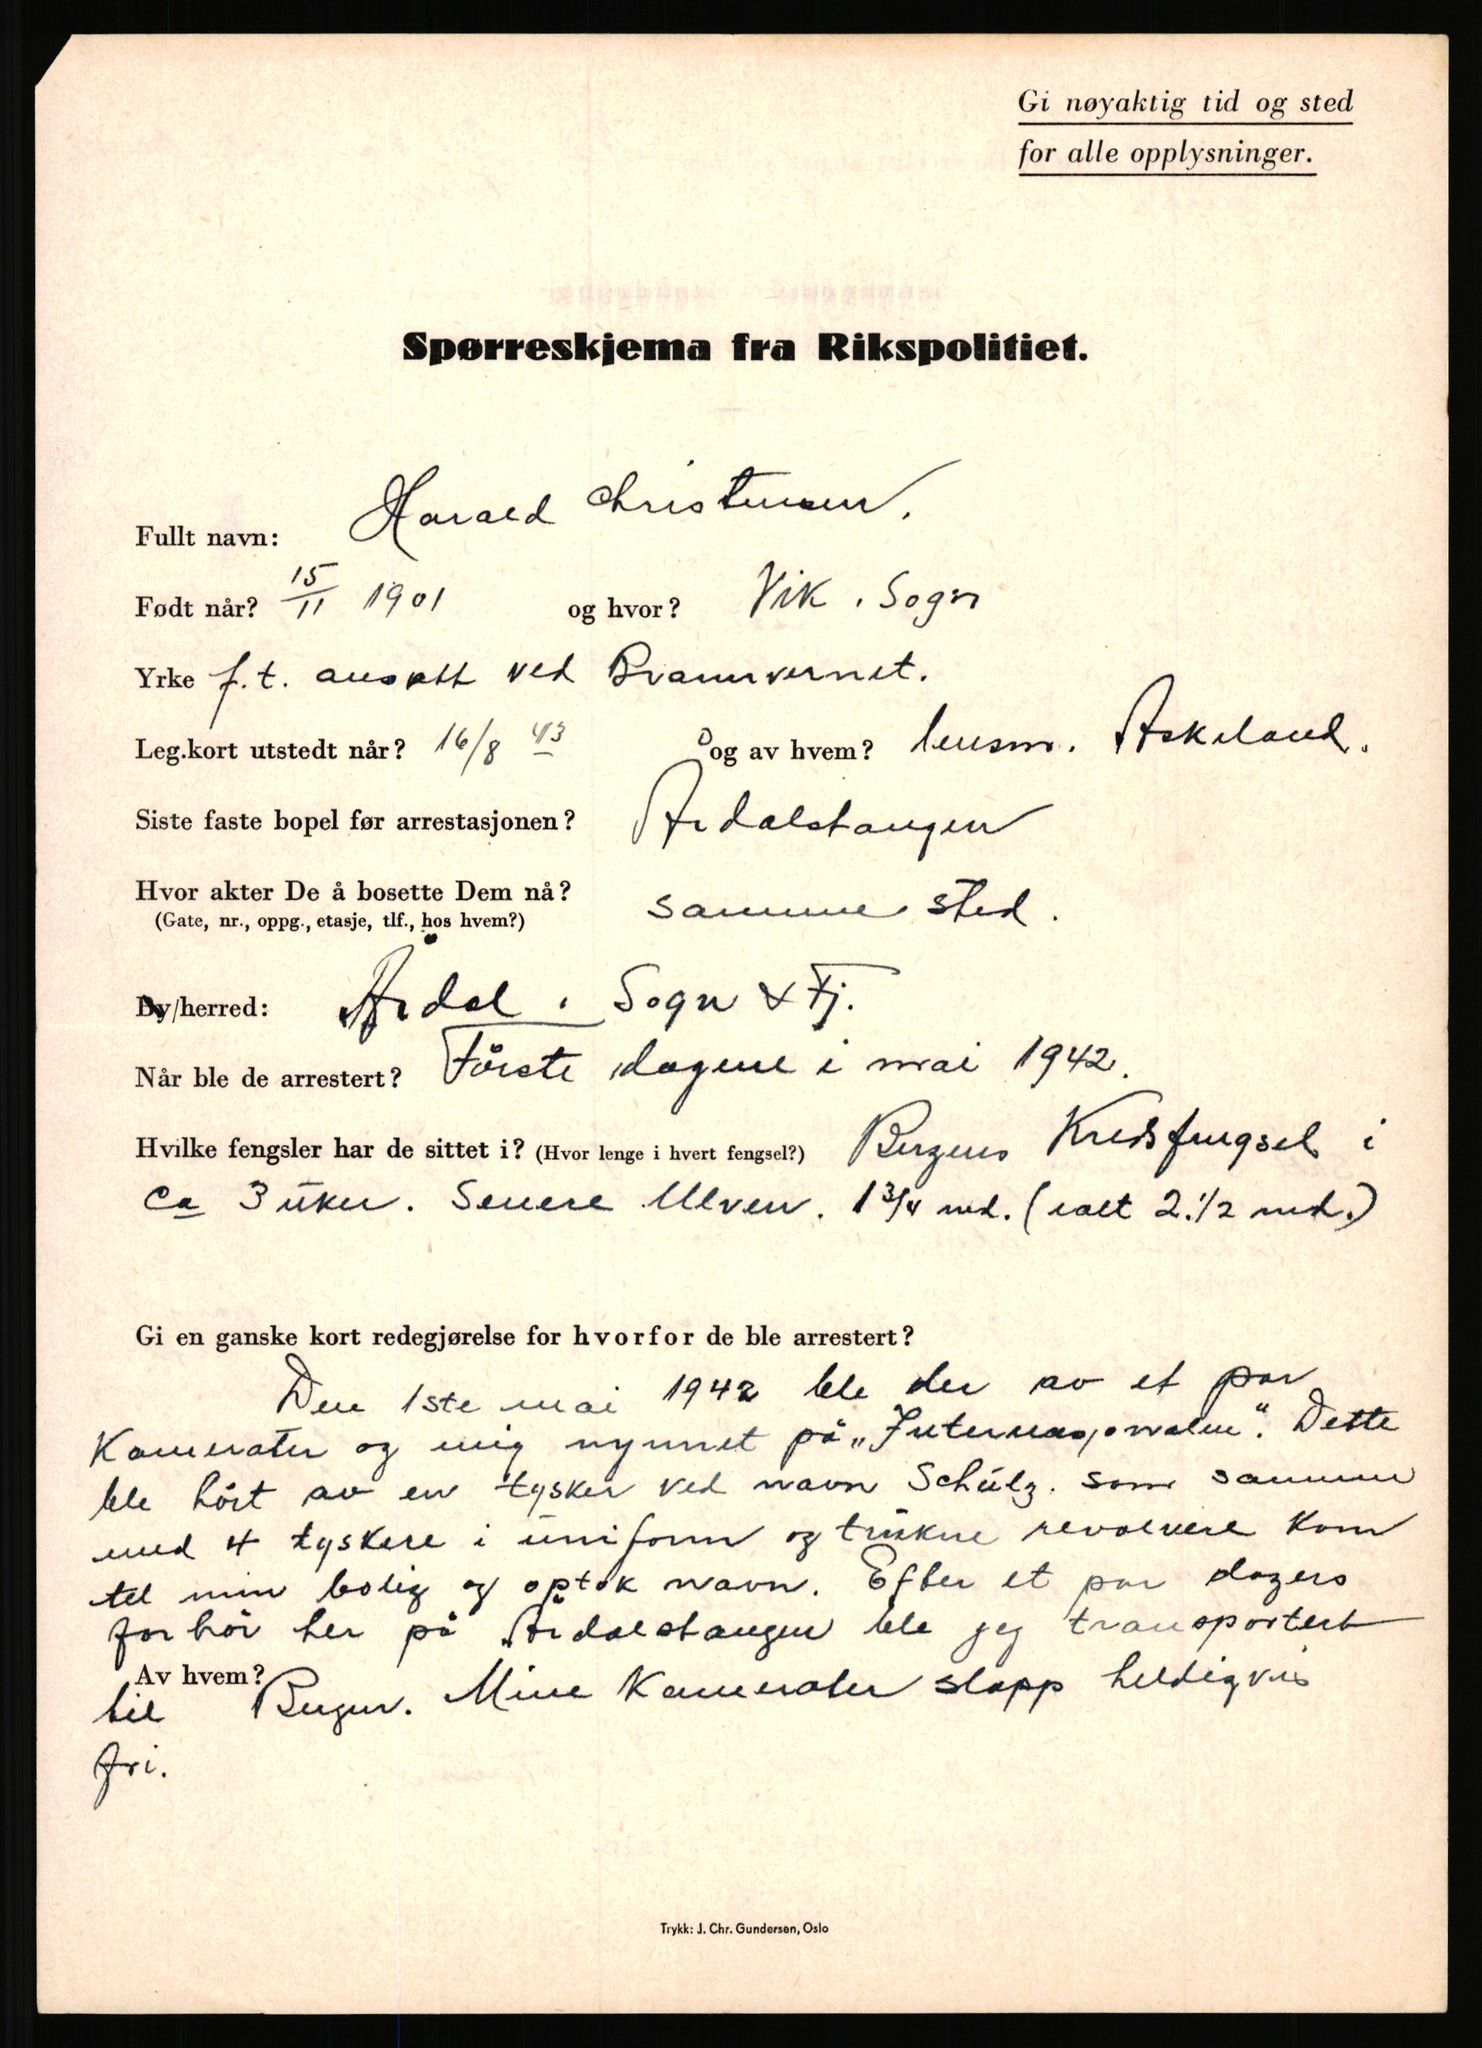 Gi nøyaktig tid og sted
for alle opplysninger.
Spørreskjema fra Rikspolitiet.
Fullt navn: Harald Christensen.
Født når? 15/11 1901 og hvor? Vik. Sogn
Yrke f.t. ansatt ved Brannvernet.
Leg.kort utstedt når? 16/8 43 og av hvem? lensm. Askeland.
Siste faste bopel før arrestasjonen? Årdalstangen
Hvor akter De å bosette Dem nå? samme sted.
(Gate, nr., oppg., etasje, tlf., hos hvem?)
By/herred: Årdal. Sogn & Fj.
Når ble de arrestert? Første dagene i mai 1942.
Hvilke fengsler har de sittet i? (Hvor lenge i hvert fengsel?) Bergens Kredsfengsel i
ca 3 uker. Senere Ulven. 1 3/4 md. (ialt 2.1/2 md.)
Gi en ganske kort redegjørelse for hvorfor de ble arrestert?
Den 1ste mai 1942 ble der av et par
Kamerater og mig nynnet på „Internasjonalen". Dette
ble hørt av en tysker ved navn Schulz. som sammen
med 4 tyskere i uniform og trukne revolvere kom
til min bolig og optok navn. Efter et par dagers
forhör her på Årdalstangen ble jeg transportert
Av hvem?
til Bergen. Mine Kamerater slapp heldigvis
fri.
Trykk: J. Chr. Gundersen, Oslo